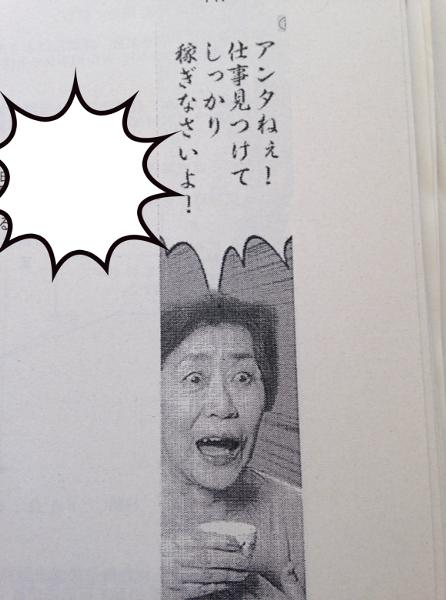 アンタねぇ！
仕事見つけて
しっかり
稼ぎなさいよ！